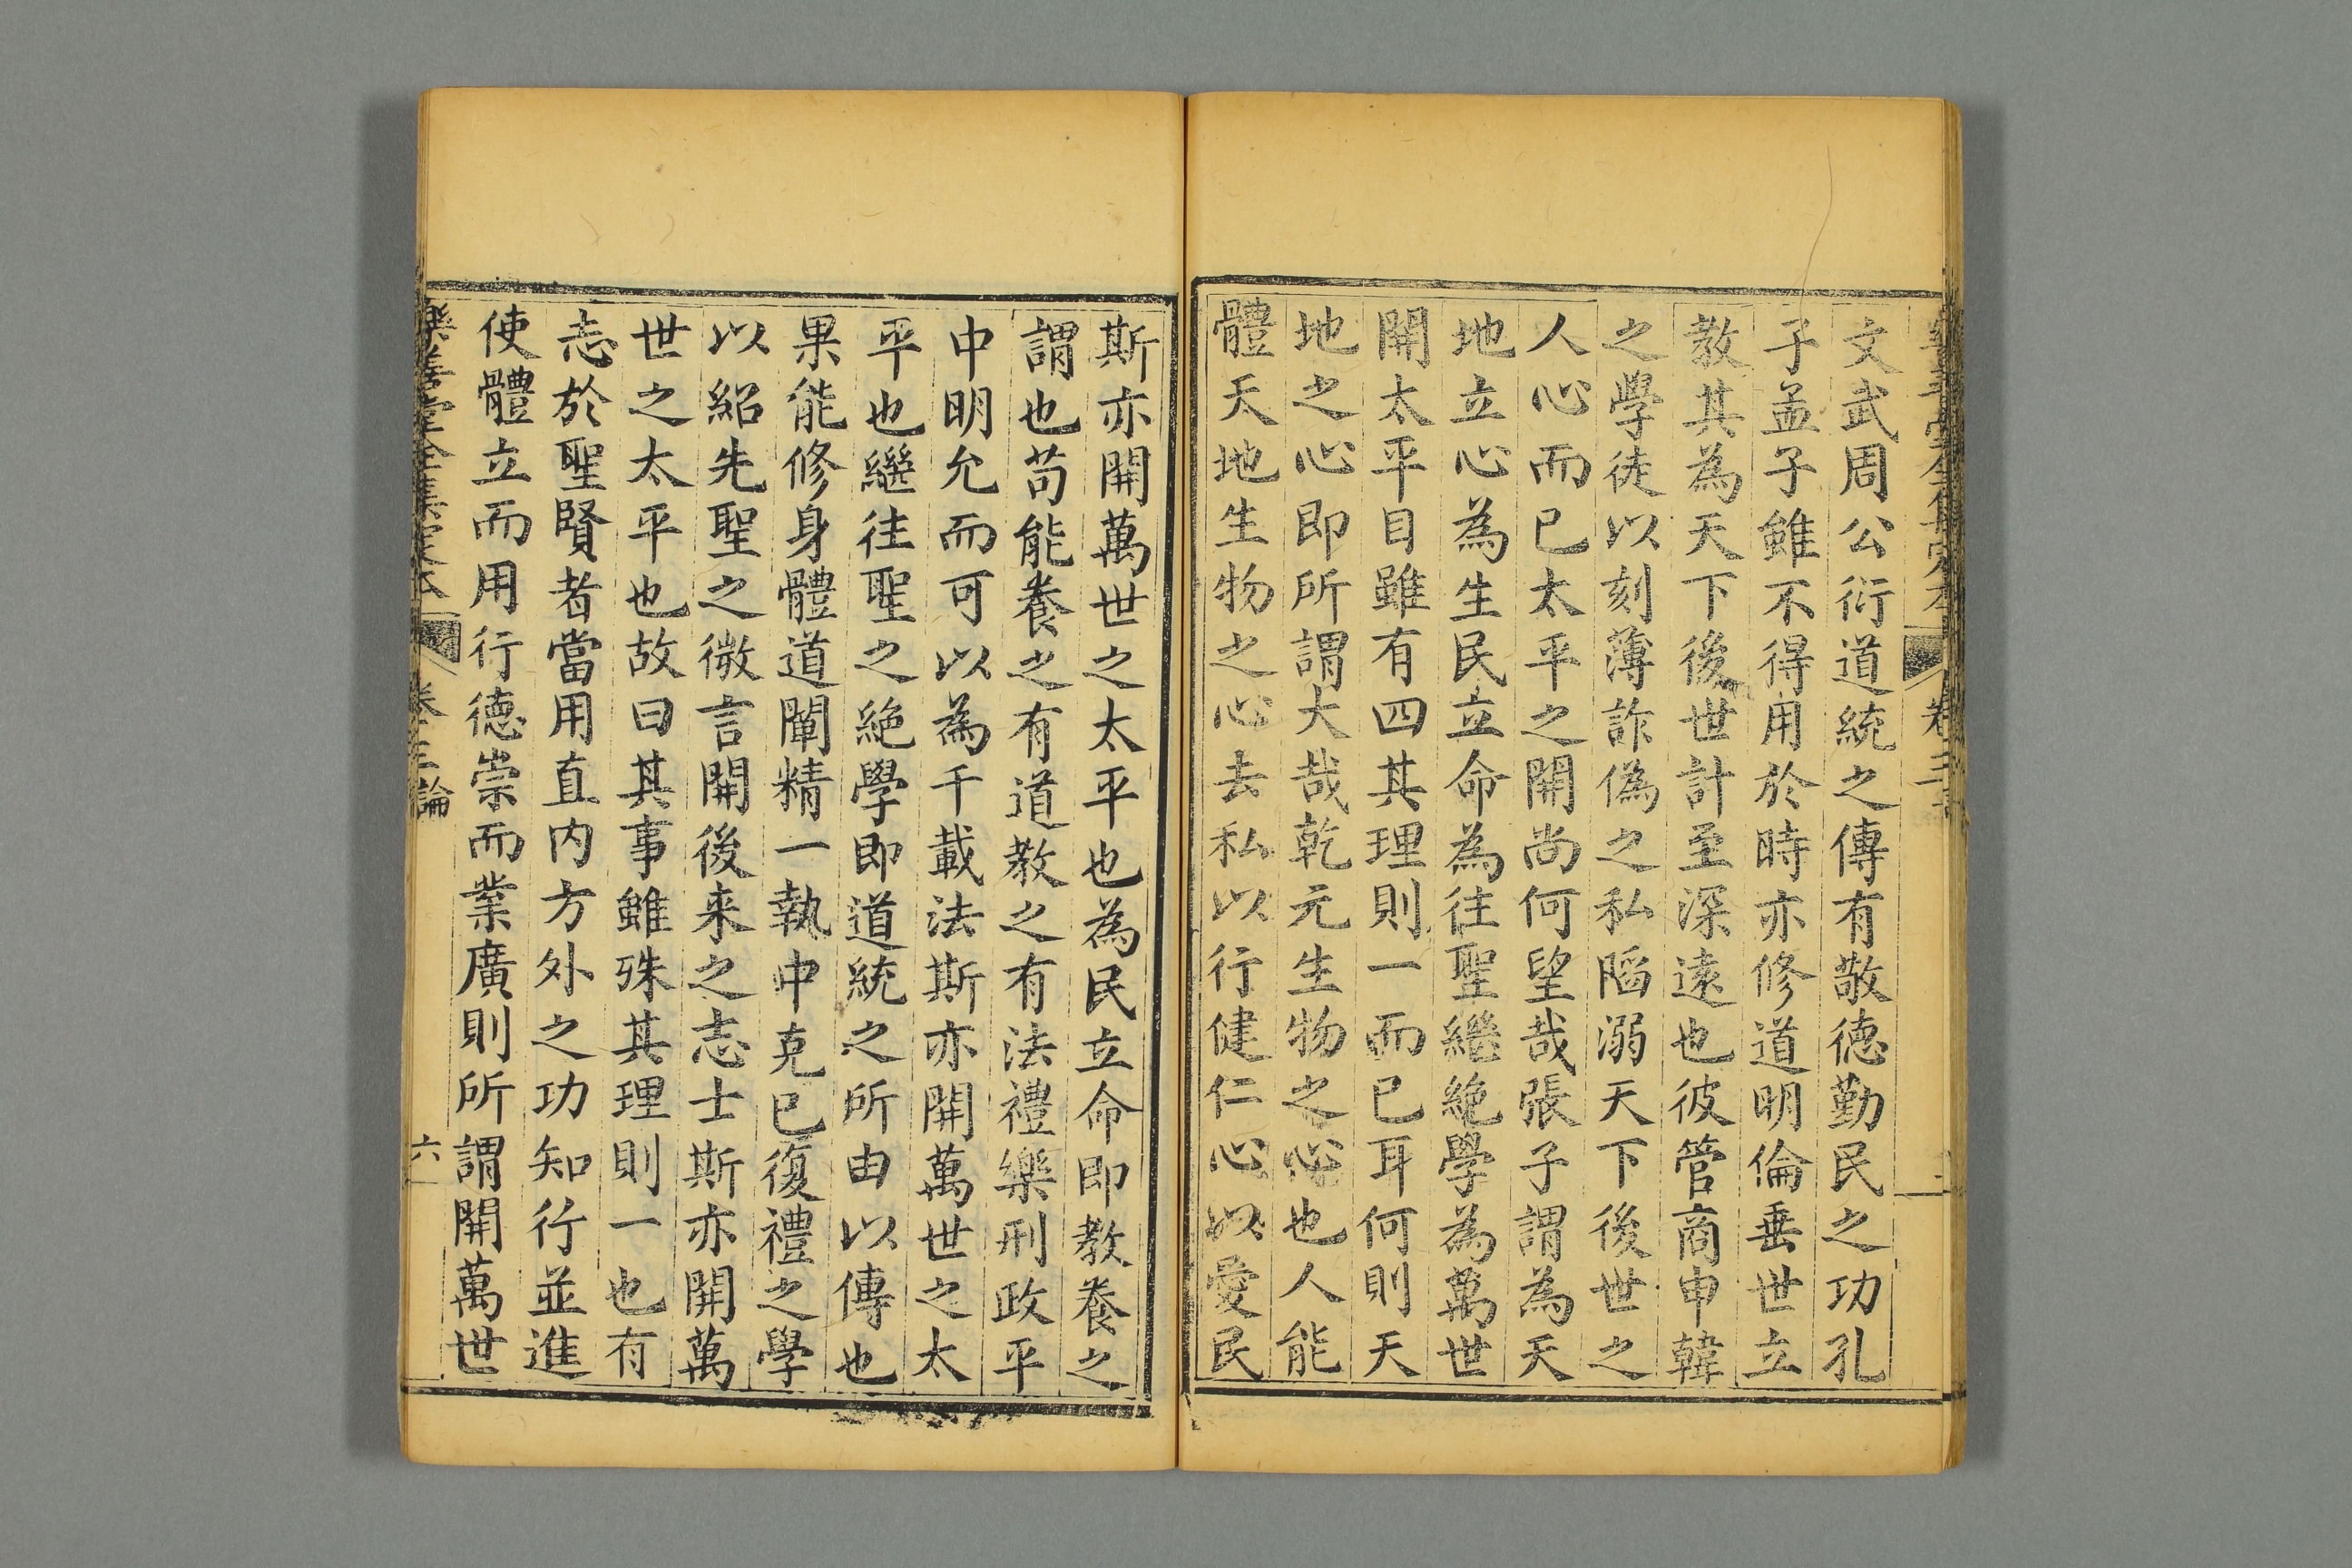 文武周公衍道統之傳有敬德勤民之功孔
子孟子雖不得用於時亦修道明倫垂世立
教其為天下後世計至深遠也彼管商申韓
之學徒以刻薄詐偽之私陷溺天下後世之
人心而已太平之開尚何望哉張子謂為天
地立心為生民立命為往聖繼絕學為萬世
開太平目雖有四其理則一而已耳何則天
地之心即所謂大哉乾元生物之心也人能
體天地生物之心去私以行健仁心以愛民
斯亦開萬世之太平也為民立命即教養之
謂也苟能養之有道教之有法禮樂刑政平
中明允而可以為千載法斯亦開萬世之太
平也繼往聖之絕學即道統之所由以傳也
果能修身體道闡精一執中克已復禮之學
以紹先聖之微言開後来之志士斯亦開萬
世之太平也故曰其事雖殊其理則一也有
志於聖賢者當用直内方外之功知行並進
使體立而用行德崇而業廣則所謂開萬世
樂善堂全集定本 卷三論 六